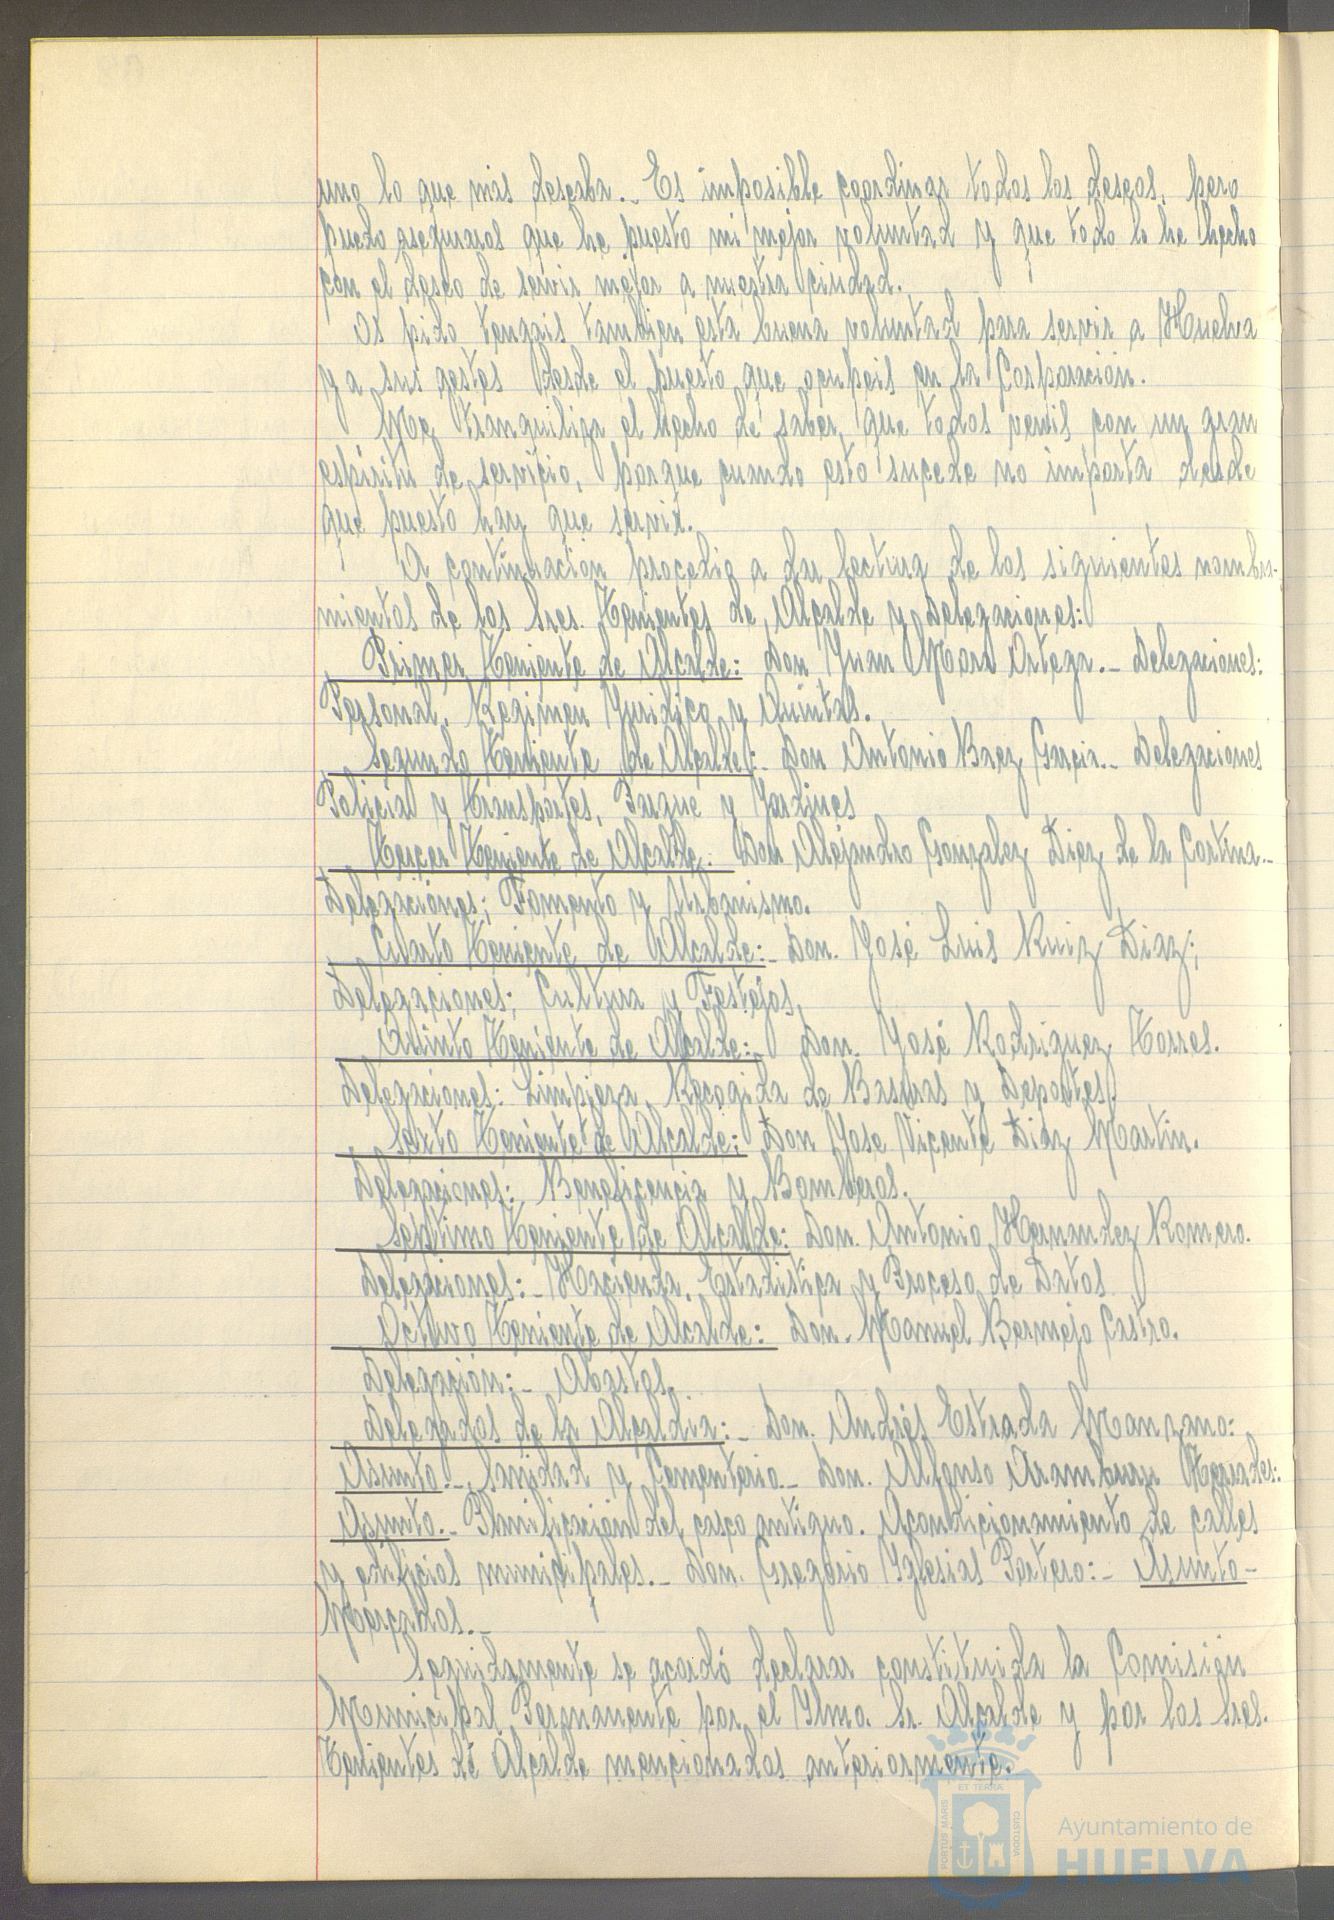 uno lo que más deseaba.- Es imposible coordinar todos los deseos, pero
puedo aseguraos que he puesto mi mejor voluntad y que todo lo he hecho
con el deseo de servir mejor a nuestra ciudad.
Os pido tengais tambien esta buena voluntad para servir a Huelva
y a sus gestes desde el puesto que ocupeis en la Corporación.
Me tranquiliza el hecho de saber, que todos venis con un gran
espíritu de servicio, porque cuando esto sucede no importa desde
que puesto hay que servir.
A continuación procedió a dar lectura de los siguientes nombra-
mientos de los Sres. Tenientes de Alcalde y Delegaciones:
Primer Teniente de Alcalde: Don Juan Mora Ortega.- Delegaciones:
Personal, Regimen Juridico y Quintas.
Segundo Teniente de Alcalde:- Don Antonio Baez Garcia.- Delegaciones
Policia y Transportes, Parque y Jardines
Tercer Teniente de Alcalde. Don Alejandro Gonzalez Diez de la Cortina.-
Delegaciones; Fomento y Urbanismo.
Cuarto Teniente de Alcalde:- Don. José Luis Ruiz Diaz;
Delegaciones; Cultura y Festejos,
Quinto Teniente de Alcalde:- Don. José Rodriguez Torres.
Delegaciones: Limpieza, Recogida de Basuras y Deportes
Sexto Teniente de Alcalde: Don Jose Vicente Diaz Martin.
Delegaciones: Beneficencia y Bomberos.
Septimo Teniente de Alcalde: Don. Antonio Hernandez Romero.
Delegaciones:- Hacienda, Estadistica y Proceso de Datos
Octavo Teniente de Alcalde: Don. Manuel Bermejo Castro.
Delegación:- Abastos,
Delegados de la Alcaldia:- Don. Andrés Estrada Manzano:
Asunto.- Sanidad y Cementerio.- Don. Alfonso Aramburu
Asunto.- del casco antiguo. Acondicionamiento de calles
y edificios municipales.- Don. Gregorio Yglesias Portero:- Asunto-
Mercados.-
Seguidamente se acordó declarar constituida la Comisión
Municipal Permanente por el Ylmo. Sr. Alcalde y por los Sres.
Tenientes de Alcalde mencionados anteriormente.
PORTUS MARIS
ET TERRÆ
CUSTODIA
Ayuntamiento de
HUELVA